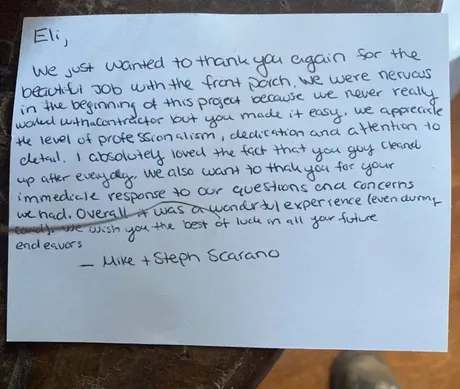 Eli,
We just wanted to thank you again for the
beautiful job with the front porch. We were nervous
in the beginning of this project because we never really
worked with a contractor but you made it easy. We appreciate
the level of professionalism, dedication and attention to
detail. I absolutely loved the fact that you guy cleaned
up after everyday. We also want to thank you for your
immediate response to our questions and concerns
we had. Overall it was a wonderful experience (even during
covid). We wish you the best of luck in all your future
endeavors
— Mike + Steph Scarano